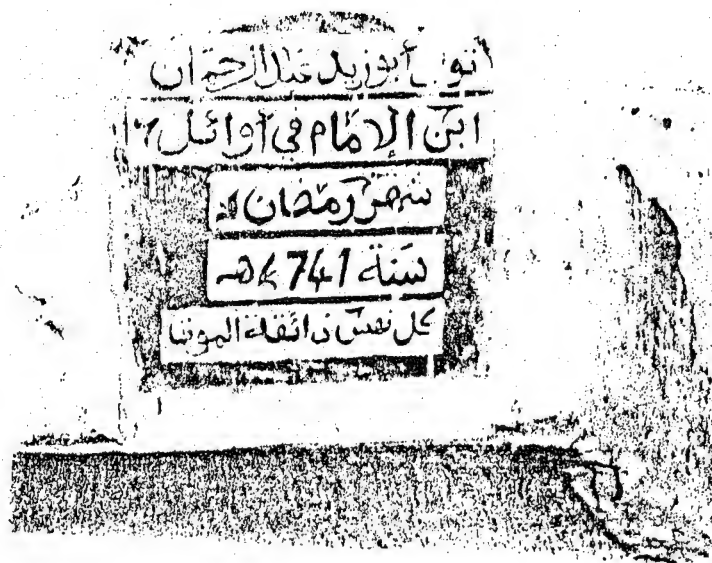 أبو زيد عبد الرحمان
ابن الإمام في أوائل
شهر رمضان
سنة 741 هـ
كل نفس ذائقة الموت